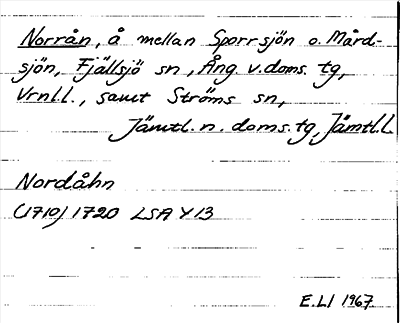 Norrån, å mellan Sporrsjön o. Mård-
sjön, Fjällsjö sn, Ång. v. doms. tg,
Vrnl.l., samt Ströms sn,
Jämtl. n. doms. tg, Jämtl.l.
Nordåhn
(1710) 1720 LSA Y 13
E.LI 1967